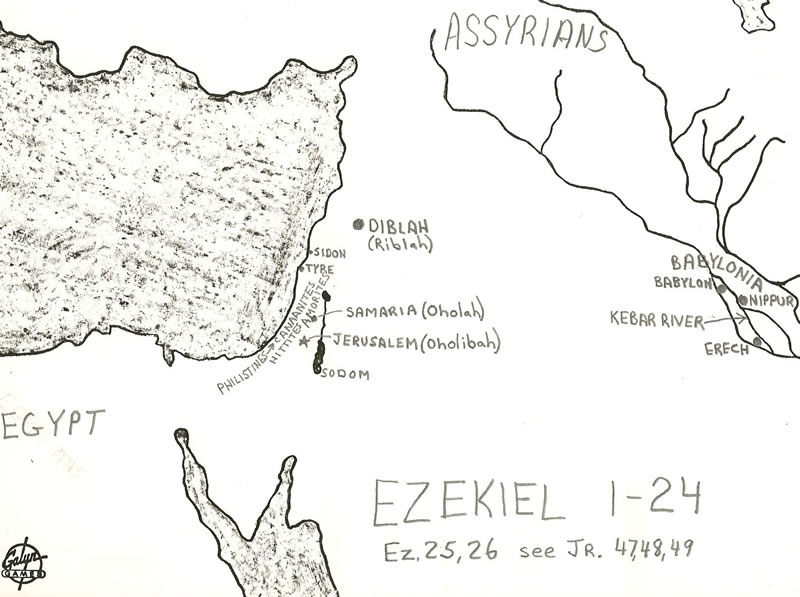 ASSYRIANS
DIBLAH
(Riblah)
SIDON
TYRE
BABYLONIA
BABYLON
NIPPUR
CANAANITES
AMORITES
SAMARIA (Oholah)
KEBAR RIVER
HITTITES
JERUSALEM (Oholibah)
ERECH
PHILISTINES
SODOM
EGYPT
EZEKIEL 1-24
Ez. 25,26 see JR. 47,48,49
Galyn
GAMES